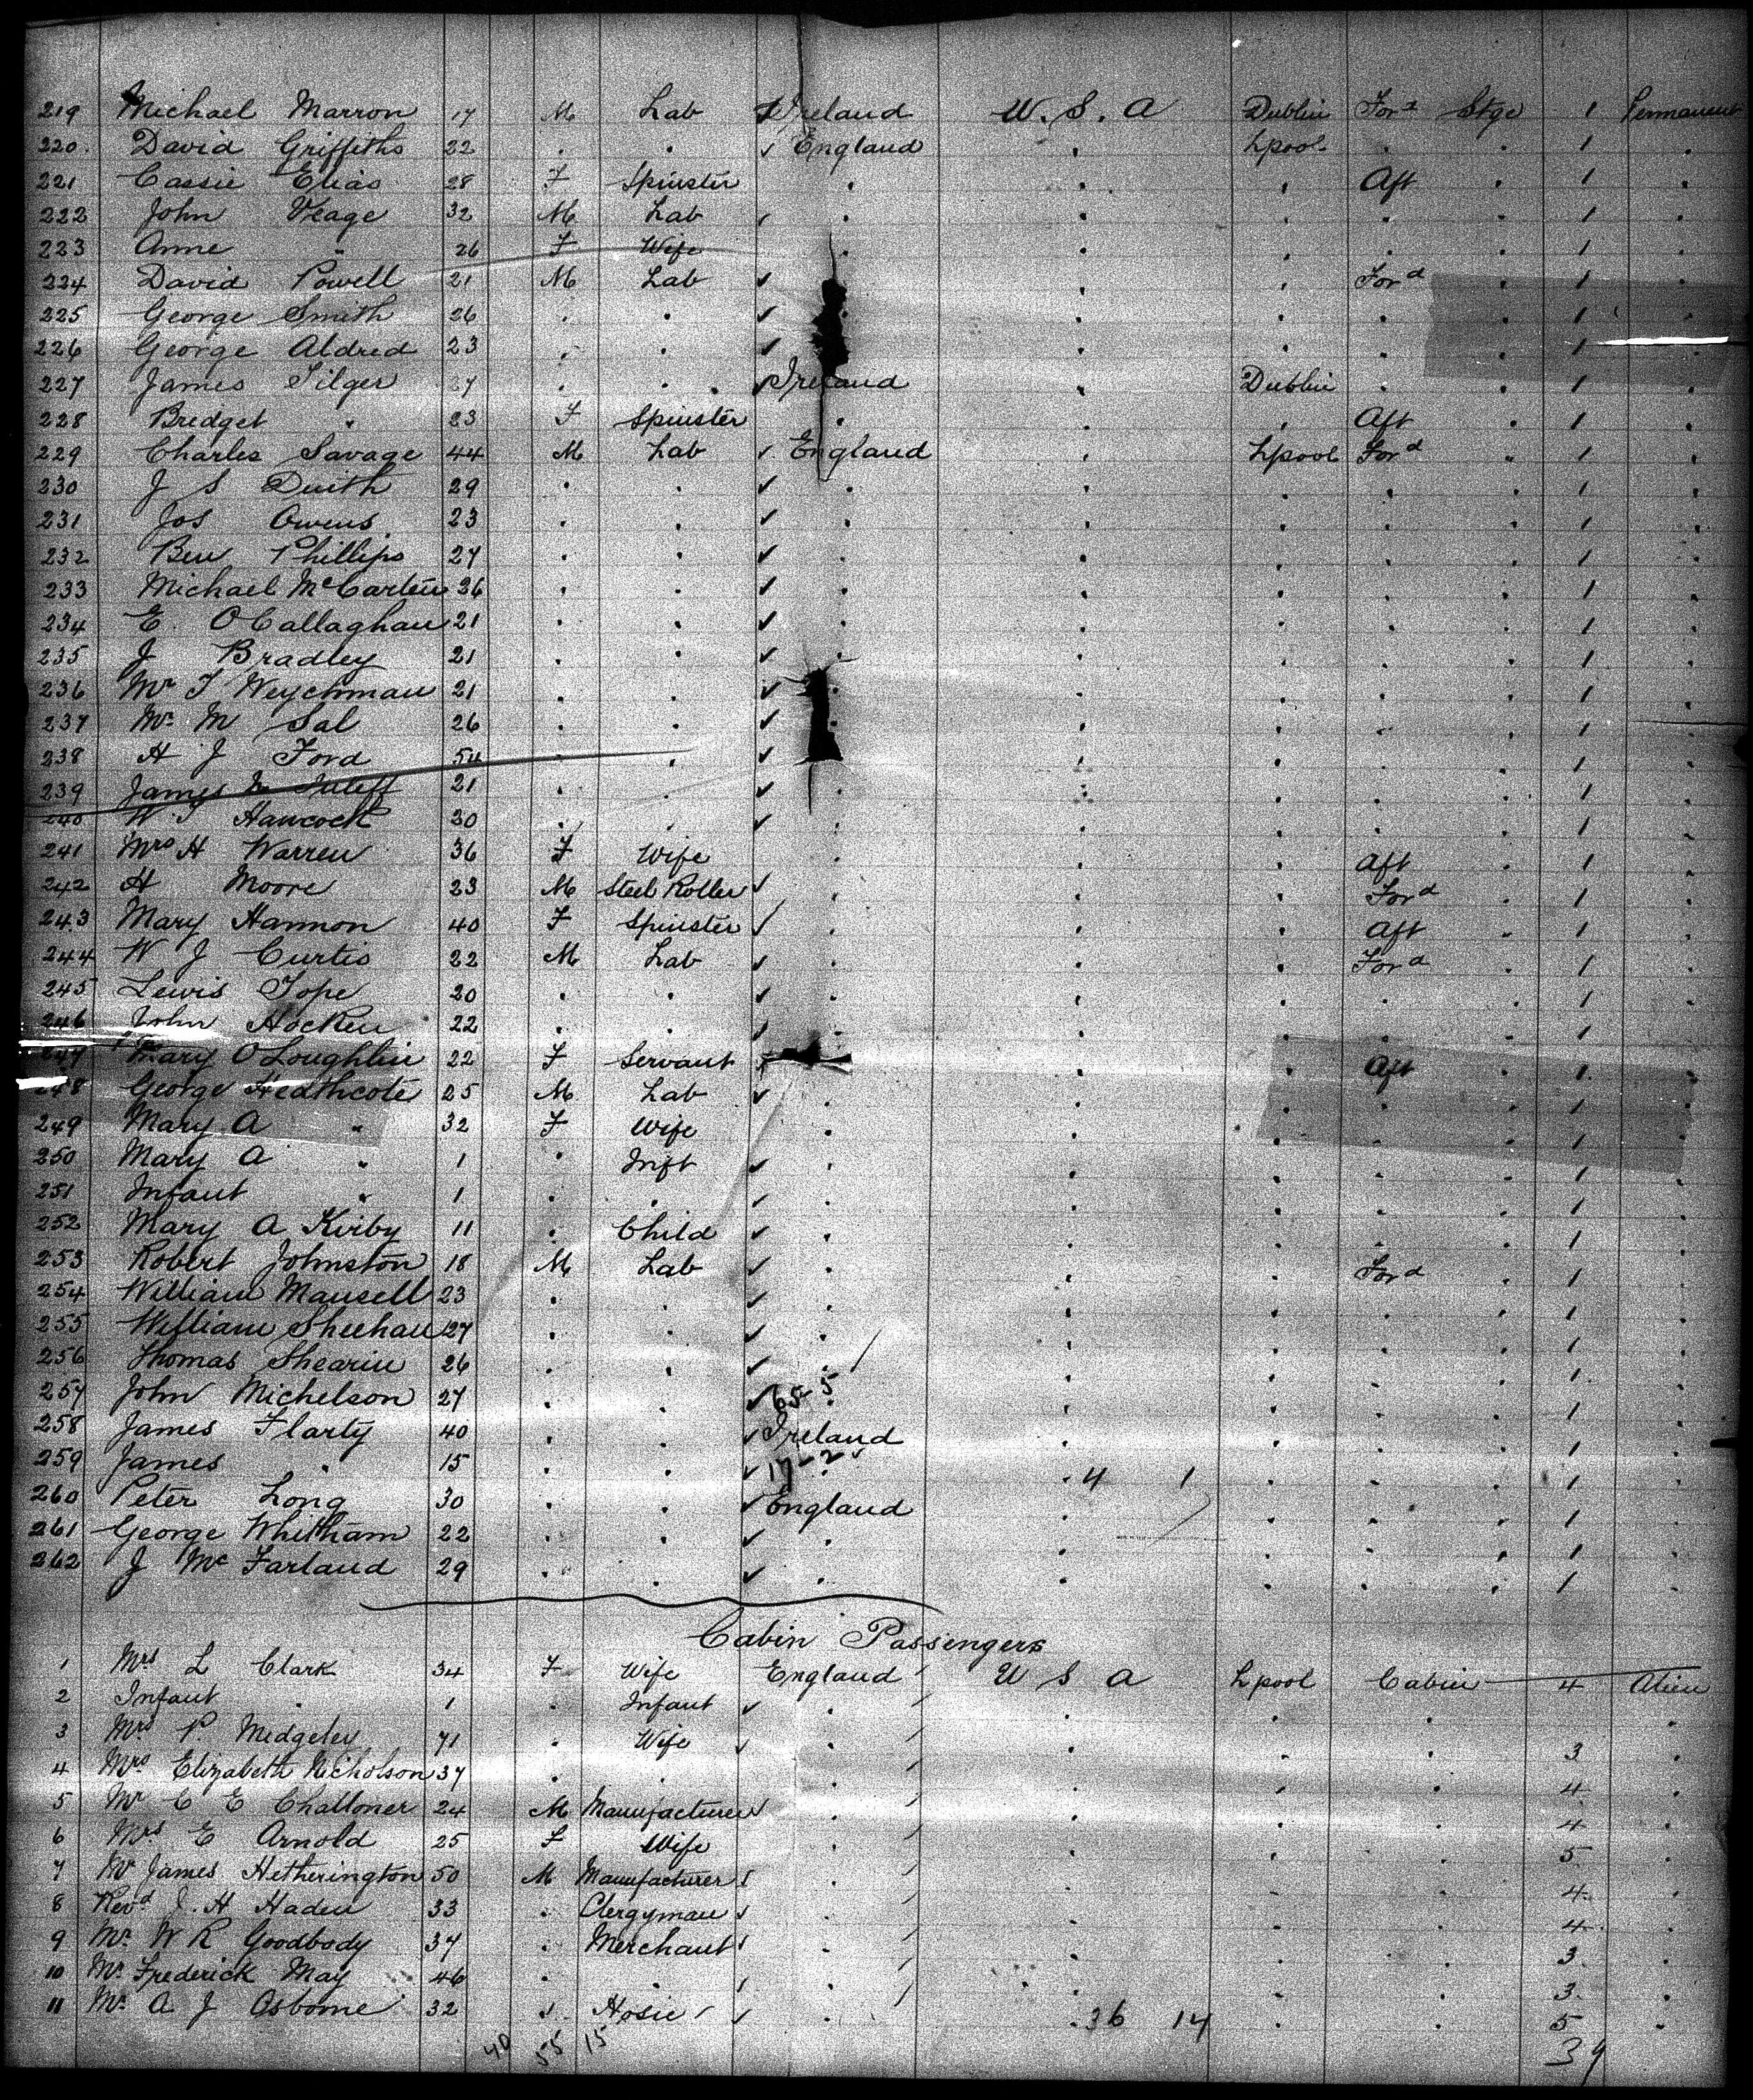 219 Michael Marron 17 M Lab Ireland U.S.A Dublin Ford Stge 1 Permanent
220. David Griffiths 22 . . ✓ England . Lpool . . 1 .
221 Cassie Elias 28 F Spinster . . . Aft . 1 .
222 John Veage 32 M Lab ✓ . . . . . 1 .
223 Anne " 26 F Wife . . . . . 1 .
224 David Powell 21 M Lab ✓ . . Ford . 1 .
225 George Smith 26 . . ✓ . . . . . 1 .
226 George Aldred 23 . . ✓ . . . . 1 .
227 James Tilger 27 . . ✓ Ireland . Dublin . . 1 .
228 Bridget " 23 F Spinster . . . Aft . 1 .
229 Charles Savage 44 M Lab ✓ England . Lpool Ford " 1 .
230 J S Duith 29 . . ✓ . . . . . 1 .
231 Jos Owens 23 . . ✓ . . . . . 1 .
232 Ben Phillips 27 . . ✓ . . . . . 1 .
233 Michael McCarten 36 . . ✓ . . . . . 1 .
234 E. OCallaghan 21 . . ✓ . . . . . 1 .
235 J Bradley 21 . . ✓ . . . . . 1 .
236 Mr T Weychman 21 . . ✓ . . . . . 1 .
237 Mr. M Sal 26 . . ✓ . . . . . 1 .
238 H J Ford 54 . . ✓ . . . . . 1 .
239 James 21 . . ✓ . . . . . 1 .
240 W. J Hancock 30 . . ✓ . . . . . 1 .
241 Mrs H Warren 36 F Wife . . . Aft . 1 .
242 H Moore 23 M Steel Roller ✓ . . . Ford . 1 .
243 Mary Hannon 40 F Spinster ✓ . . . Aft . 1 .
244 W J Curtis 22 M Lab ✓ . . . Ford . 1 .
245 Lewis Tope 20 . . ✓ . . . . . 1 .
246 John Hocken 22 . . ✓ . . . . . 1 .
247 Mary O Loughlin 22 F Servant . . Aft . 1 .
248 George Heathcote 25 M Lab ✓ . . . . . 1 .
249 Mary A " 32 F Wife . . . . . 1 .
250 Mary A " 1 . Inft ✓ . . . . . 1 .
251 Infant " 1 . . ✓ . . . . . 1 .
252 Mary A Kirby 11 . Child ✓ . . . . . 1 .
253 Robert Johnston 18 M Lab ✓ . . . Ford . 1 .
254 William Mansell 23 . . ✓ . . . . . 1 .
255 William Sheehan 27 . . ✓ . . . . . 1 .
256 Thomas Shearin 26 . . ✓ . . . . . 1 .
257 John Michelson 27 . . ✓ 65-5 . . . . . 1 .
258 James Flarty 40 . . ✓ Ireland . . . . 1 .
259 James " 15 . . ✓ 17-2 . 4 1 . . . 1 .
260 Peter Long 30 . . ✓ England . . . . 1 .
261 George Whitham 22 . . ✓ . . . . . 1 .
262 J McFarland 29 . . ✓ . . . . . 1 .
Cabin Passengers
1 Mrs L Clark 34 F Wife England U S A Lpool Cabin 4 Alien
2 Infant " 1 . Infant ✓ . . . . .
3 Mrs P. Medgeley 71 . Wife ✓ . . . . 3 .
4 Mrs Elizabeth Nicholson 37 . . . . . . 4 .
5 Mr C E Challoner 24 M Manufacturer ✓ . . . . 4 .
6 Mrs E Arnold 25 F Wife . . . . 5 .
7 Mr James Hetherington 50 M Manufacturer ✓ . . . . 4 .
8 Revd J. H Haden 33 . Clergyman ✓ . . . . 4 .
9 Mr. W R Goodbody 37 . Merchant ✓ . . . . 3 .
10 Mr Frederick May 46 . . . . . . 3 .
11 Mr. A J Osborne 32 . Hosier ✓ . 36 14 . . 5 .
40 55 15 39